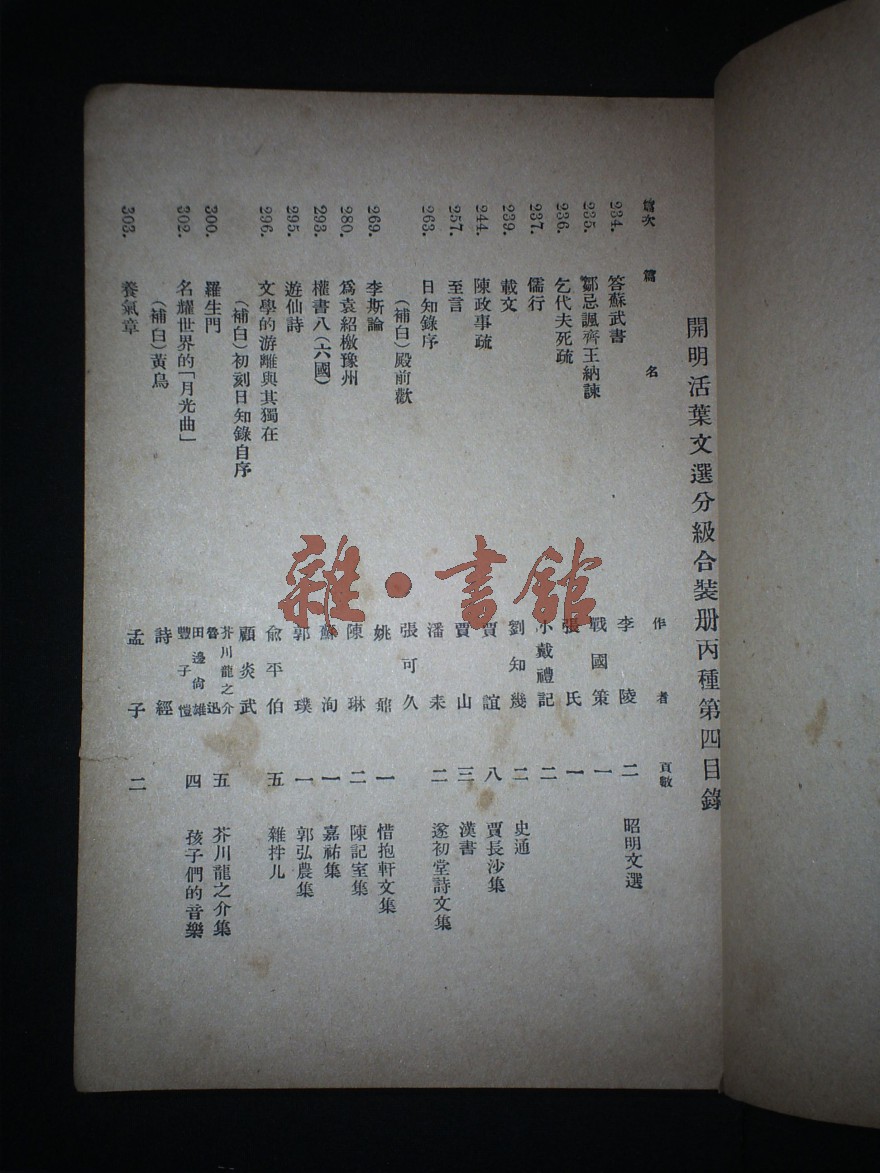 開明活葉文選分級合裝册丙種第四目錄
篇次 篇名 作者 頁數
234. 答蘇武書 李陵 二 昭明文選
235. 鄒忌諷齊王納諫 戰國策 一
236. 乞代夫死疏 張氏 一
237. 儒行 小戴禮記 二
239. 載文 劉知幾 二 史通
244. 陳政事疏 賈誼 八 賈長沙集
257. 至言 賈山 三 漢書
263. 日知錄序 潘耒 二 遂初堂詩文集
(補白)殿前歡 張可久
269. 李斯論 姚鼐 一 惜抱軒文集
280. 爲袁紹檄豫州 陳琳 二 陳記室集
293. 權書八(六國) 蘇洵 一 嘉祐集
295. 遊仙詩 郭璞 一 郭弘農集
296. 文學的游離與其獨在 俞平伯 五 雜拌儿
(補白)初刻日知錄自序 顧炎武
300. 羅生門 芥川龍之介 魯迅 五 芥川龍之介集
302. 名耀世界的「月光曲」 田邊尙雄 豐子愷 四 孩子們的音樂
(補白)黃鳥 詩經
303. 養氣章 孟子 二
雜·書館